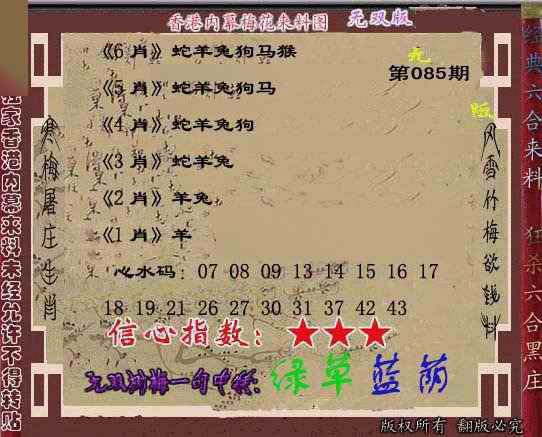 香港内幕梅花来料图 无双版
《6 肖》蛇羊兔狗马猴
第085期
《5 肖》蛇羊兔狗马
《4 肖》蛇羊兔狗
《3 肖》蛇羊兔
《2 肖》羊兔
《1 肖》羊
心水码: 07 08 09 13 14 15 16 17
18 19 21 26 27 30 31 37 42 43
信心指数: ★★★
绿草蓝荫
家香港内幕来料未经允许不得转贴
寒梅屠庄生肖
风雪竹梅欲钱料
经典六合来料
狂杀六合黑庄
版权所有 翻版必究